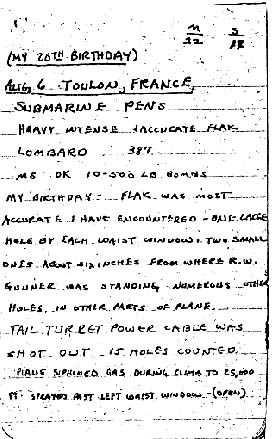 M S
22 22
(MY 20TH BIRTHDAY)
AUG. 6 TOULON, FRANCE,
SUBMARINE PENS
HEAVY INTENSE & ACCURATE FLAK
LOMBARD 387
MS OK 10-500 LB BOMBS
MY BIRTHDAY - FLAK WAS MOST
ACCURATE I HAVE ENCOUNTERED - ONE LARGE
HOLE BY EACH WAIST WINDOW. TWO SMALL
ONES ABOUT SIX INCHES FROM WHERE R.W.
GUNNER WAS STANDING. NUMEROUS OTHER
HOLES IN OTHER PARTS OF PLANE.
TAIL TURRET POWER CABLE WAS
SHOT OUT. 15 HOLES COUNTED.
PLANE SIPHONED GAS DURING CLIMB TO 25,000
FT. SPRAYED PAST LEFT WAIST WINDOW - (OPEN)